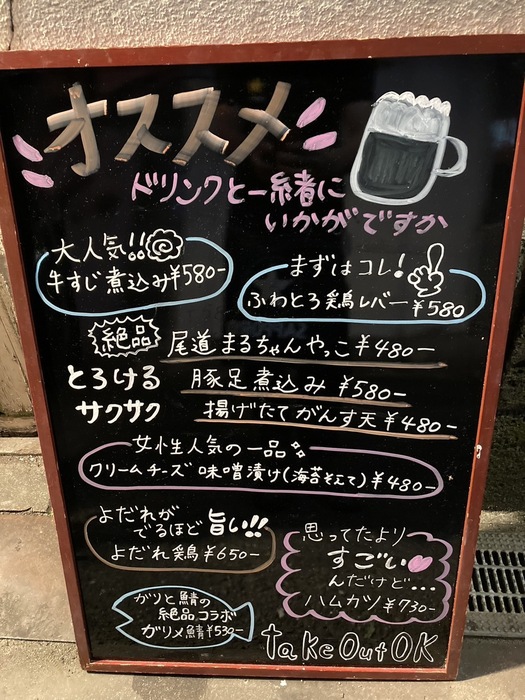 オススメ
ドリンクと一緒に
いかがですか
大人気!!
牛すじ煮込み¥580-
まずはコレ!
ふわとろ鶏レバー¥580
絶品 尾道まるちゃんやっこ¥480-
とろける 豚足煮込み¥580-
サクサク 揚げたてがんす天¥480-
女性人気の一品
クリームチーズ味噌漬け(海苔そえて)¥480-
よだれが
でるほど旨い!!
よだれ鶏¥650-
思ってたより
すごい
んだけど...
ハムカツ¥730-
ガツと鯖の
絶品コラボ
ガリメ鯖¥530-
take Out OK